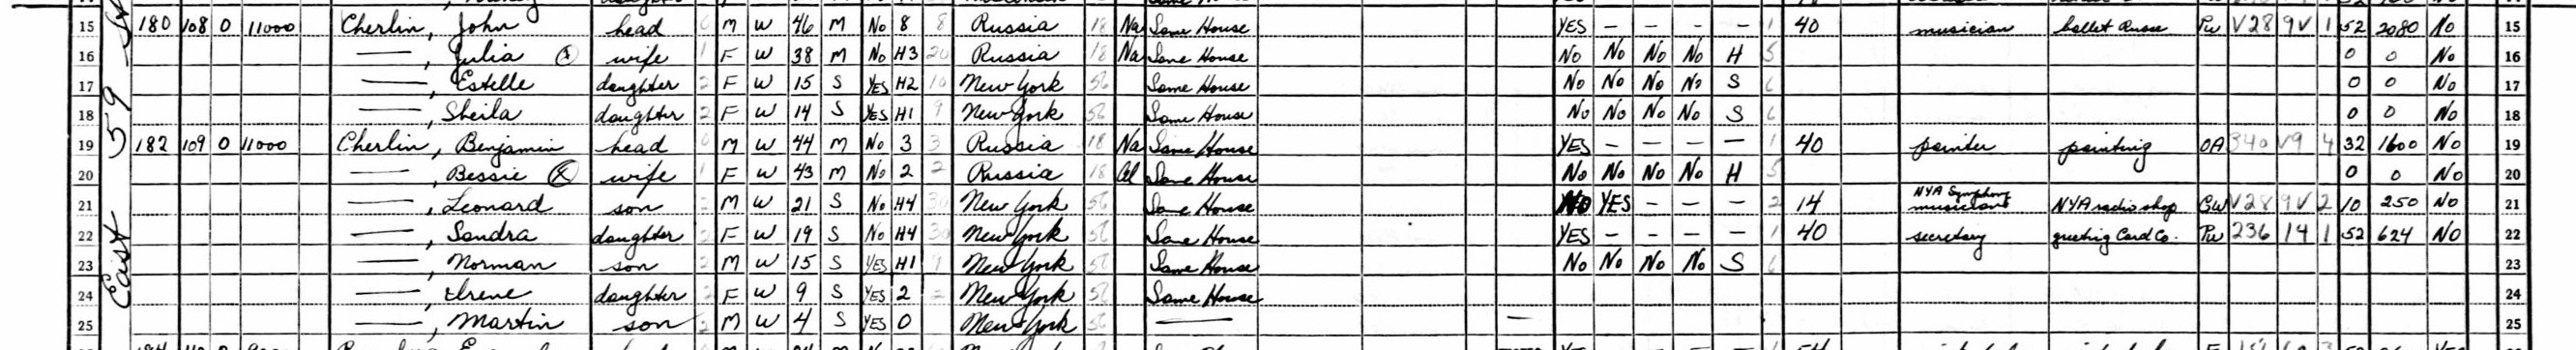 15 180 108 0 11000 Cherlin, John head 0 M W 46 M No 8 8 Russia 18 Na Same House YES – – – – 1 40 musician ballet Russe PW V28 9V 1 52 2080 No 15
16 ——, Julia ⓧ wife 1 F W 38 M No H3 Russia 18 Na Same House No No No No H 5 0 0 No 16
17 ——, Estelle daughter 2 F W 15 S YES H2 10 New York 56 Same House No No No No S 6 0 0 No 17
18 ——, Sheila daughter 2 F W 14 S YES H1 9 New York 56 Same House No No No No S 6 0 0 No 18
19 182 109 0 11000 Cherlin, Benjamin head 0 M W 44 M No 3 3 Russia 18 Na Same House YES – – – – 1 40 painter painting OA 340 V9 4 32 1600 No 19
20 ——, Bessie ⓧ wife 1 F W 43 M No 2 2 Russia 18 Al Same House No No No No H 5 0 0 No 20
21 ——, Leonard son 2 M W 21 S No H4 30 New York 56 Same House No YES – – – 2 14 NYA Symphony musician NYA radio shop GW V28 9V 2 10 250 No 21
22 ——, Sandra daughter 2 F W 19 S No H4 30 New York 56 Same House YES – – – – 1 40 secretary greeting Card Co. PW 236 14 1 52 624 No 22
23 ——, Norman son 2 M W 15 S YES H1 9 New York 56 Same House No No No No S 6 23
24 ——, Irene daughter 2 F W 9 S YES 2 2 New York 56 Same House 24
25 ——, Martin son 2 M W 4 S YES 0 New York 56 —— — 25
East 59